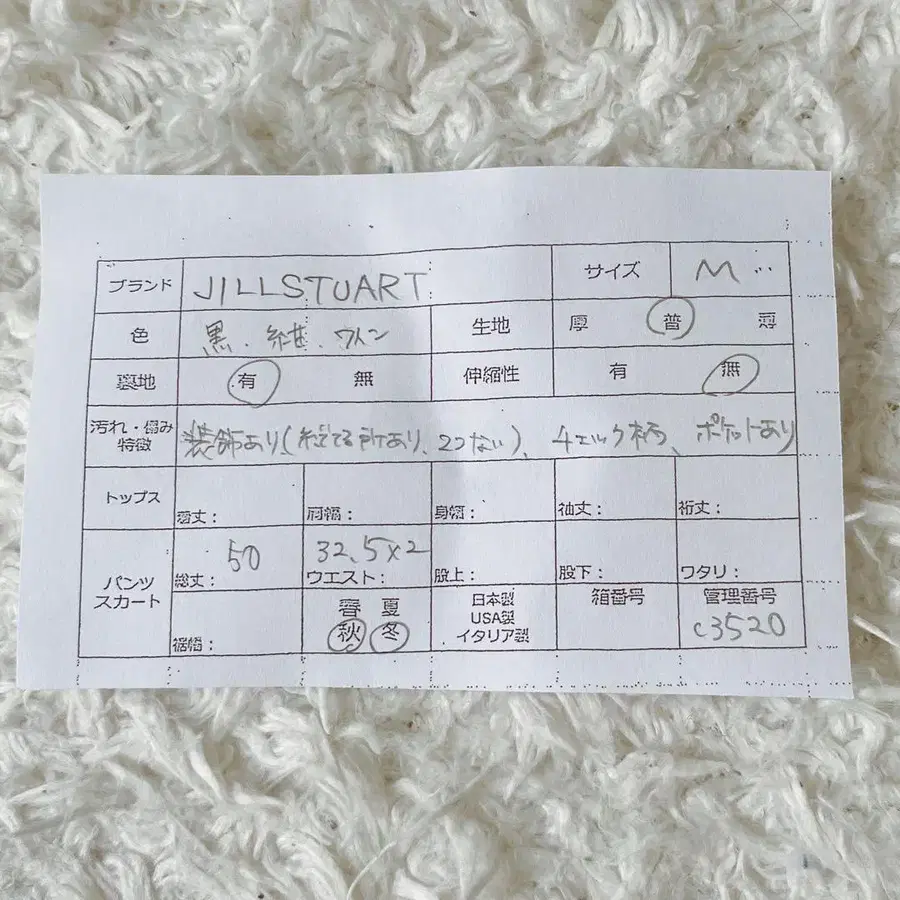 ブランド JILLSTUART サイズ M
色 黒、紺、ワイン 生地 厚 普 薄
裏地 有 無 伸縮性 有 無
汚れ・傷み 装飾あり(捨てる所あり、2つない)、チェック柄、ポケットあり
特徴
トップス 着丈: 肩幅: 身幅: 袖丈: 裄丈:
パンツ スカート 総丈: 50 ウエスト: 32.5×2 股上: 股下: ワタリ:
裾幅: 春 夏 秋 冬 日本製 USA製 イタリア製 箱番号 管理番号 c3520